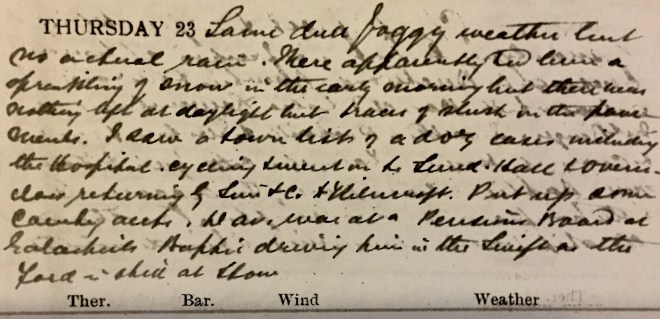 THURSDAY 23 Same dull foggy weather but
no actual rain. There apparently had been a
sprinkling of snow in the early morning but there was
nothing left at daylight but traces of slush on the pave
ments. I saw a town list of a doz cases including
the Hospital. cycling & went on to Hall &
class returning by & Co.
County accts. Dav. was at a Pensions Board at
Galashiels driving him in the Swift as the
Ford is still at Stow
Ther. Bar. Wind Weather